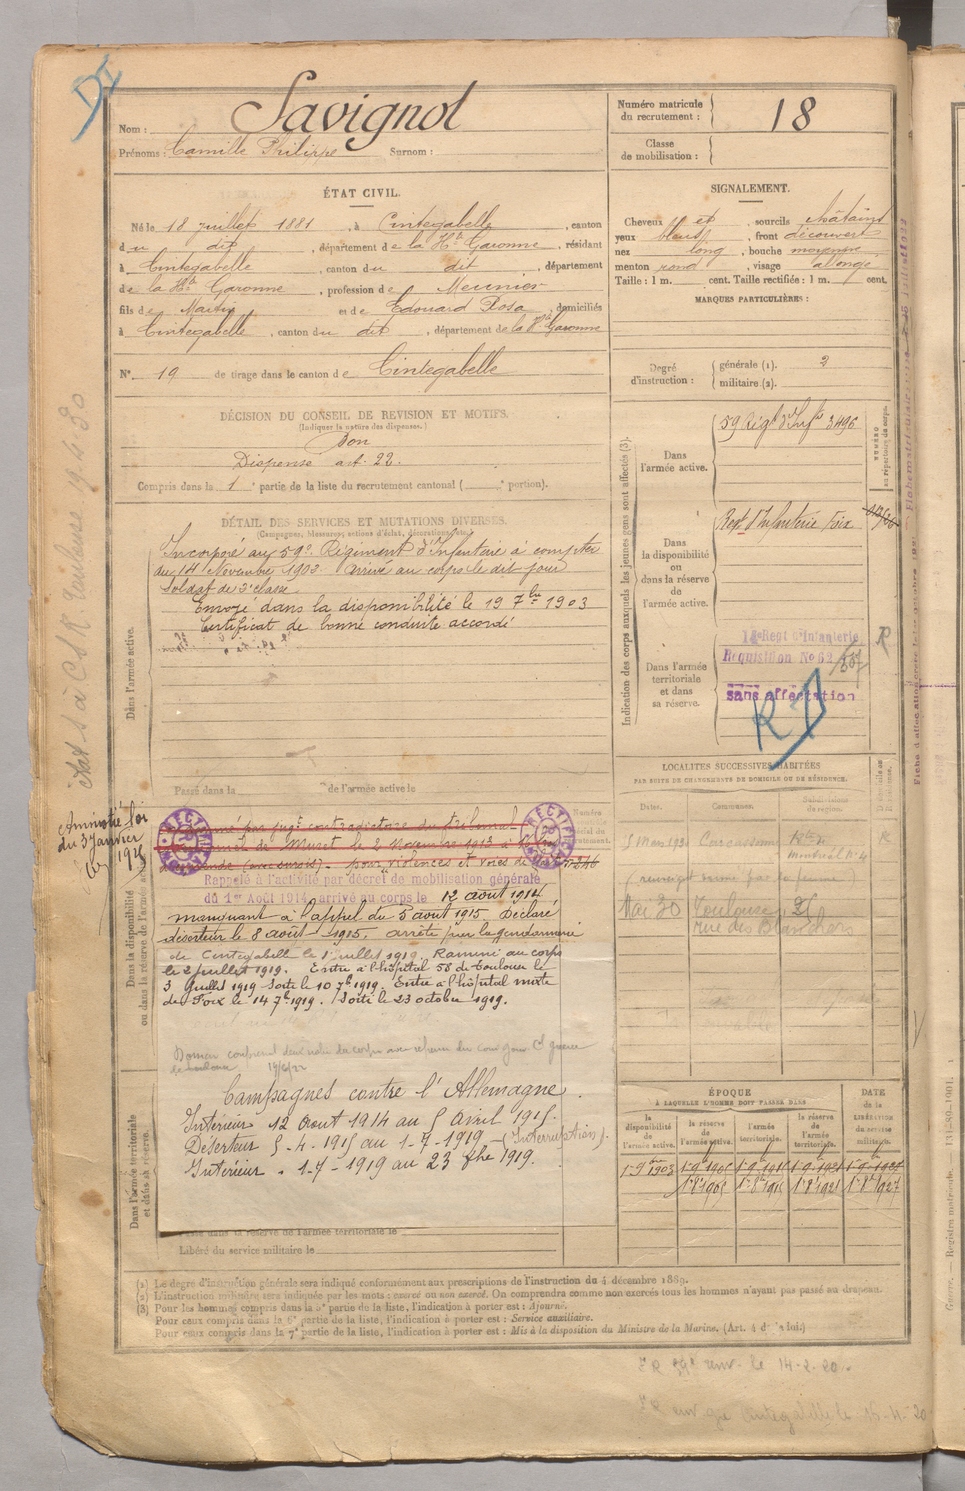 Nom : Savignol
Prénoms : Camille Philippe Surnom :
Numéro matricule du recrutement : 18
Classe de mobilisation :
ÉTAT CIVIL.
Né le 18 juillet 1881, à Cintegabelle, canton
du dit, département de la Hte Garonne, résidant
à Cintegabelle, canton du dit, département
de la Hte Garonne, profession de Meunier
fils de Martin et de Edouard Rosa domiciliés
à Cintegabelle, canton du dit, département de la Hte Garonne
N° 19 de tirage dans le canton de Cintegabelle
SIGNALEMENT.
Cheveux et, sourcils châtains
yeux bleus, front découvert
nez long, bouche moyenne
menton rond, visage allongé
Taille : 1 m. cent. Taille rectifiée : 1 m. cent.
MARQUES PARTICULIÈRES :
Degré d'instruction : générale (1). 2
militaire (2).
DÉCISION DU CONSEIL DE REVISION ET MOTIFS.
(Indiquer la nature des dispenses.)
Bon
Dispensé art. 22.
Compris dans la 1e partie de la liste du recrutement cantonal ( portion).
DÉTAIL DES SERVICES ET MUTATIONS DIVERSES.
(Campagnes, blessures, actions d'éclat, décorations, etc.)
Dans l'armée active.
Incorporé au 59e Régiment d'Infanterie à compter
du 14 Novembre 1902. Arrivé au corps le dit jour
Soldat de 2e classe
Envoyé dans la disponibilité le 19 7bre 1903
Certificat de bonne conduite accordé
Passé dans la de l'armée active le
Indication des corps auxquels les jeunes gens sont affectés (3).
NUMÉRO au répertoire du corps.
Dans l'armée active.
59 Régt d'Infie 3496
Dans la disponibilité ou dans la réserve de l'armée active.
Regt d'Infanterie Foix
Dans l'armée territoriale et dans sa réserve.
Regt d'Infanterie
Requisition No 62
sans affectation
R
Dans la disponibilité ou dans la réserve de l'armée active
Amnistié loi
du 3 Janvier
1925
RECTIFIÉ
par jugt contradictoire du Tribunal
de Muret le 2 Novembre 1912 à
(avec sursis). pour violences et voies de
Rappelé à l'activité par décret de mobilisation générale
du 1er Août 1914, arrivé au corps le 12 août 1914,
manquant à l'appel du 5 août 1915. Déclaré
déserteur le 8 août 1915. arrêté par la gendarmerie
de Cintegabelle le 1 juillet 1919. Ramené au corps
le 2 juillet 1919. Entré à l'hôpital 58 de Toulouse le
3 Juillet 1919 Sorti le 10 7b 1919. Entré à l'hôpital mixte
de Foix le 14 7b 1919. Sorti le 23 octobre 1919.
Campagnes contre l'Allemagne
Intérieur 12 Aout 1914 au 5 Avril 1915.
Déserteur 5-4-1915 au 1-7-1919 (Interruption).
Intérieur . 1-7-1919 au 23 1919.
LOCALITÉS SUCCESSIVES HABITÉES
PAR SUITE DE CHANGEMENTS DE DOMICILE OU DE RÉSIDENCE.
Dates. Communes. Subdivisions de région.
Carcassonne
(renseignt par la femme)
Mai 30 Toulouse 26
rue des Blanchers
ÉPOQUE
À LAQUELLE L'HOMME DOIT PASSER DANS
la disponibilité de l'armée active.
la réserve de l'armée active.
l'armée territoriale.
la réserve de l'armée territoriale.
DATE de la LIBÉRATION du service militaire.
Dans l'armée territoriale et dans sa réserve.
dans la réserve de l'armée territoriale le
Libéré du service militaire le
(1) Le degré d'instruction générale sera indiqué conformément aux prescriptions de l'instruction du 4 décembre 1889.
(2) L'instruction militaire sera indiquée par les mots : exercé ou non exercé. On comprendra comme non exercés tous les hommes n'ayant pas passé au drapeau.
(3) Pour les hommes compris dans la 5e partie de la liste, l'indication à porter est : Ajourné.
Pour ceux compris dans la 6e partie de la liste, l'indication à porter est : Service auxiliaire.
Pour ceux compris dans la 7e partie de la liste, l'indication à porter est : Mis à la disposition du Ministre de la Marine. (Art. 4 de la loi.)